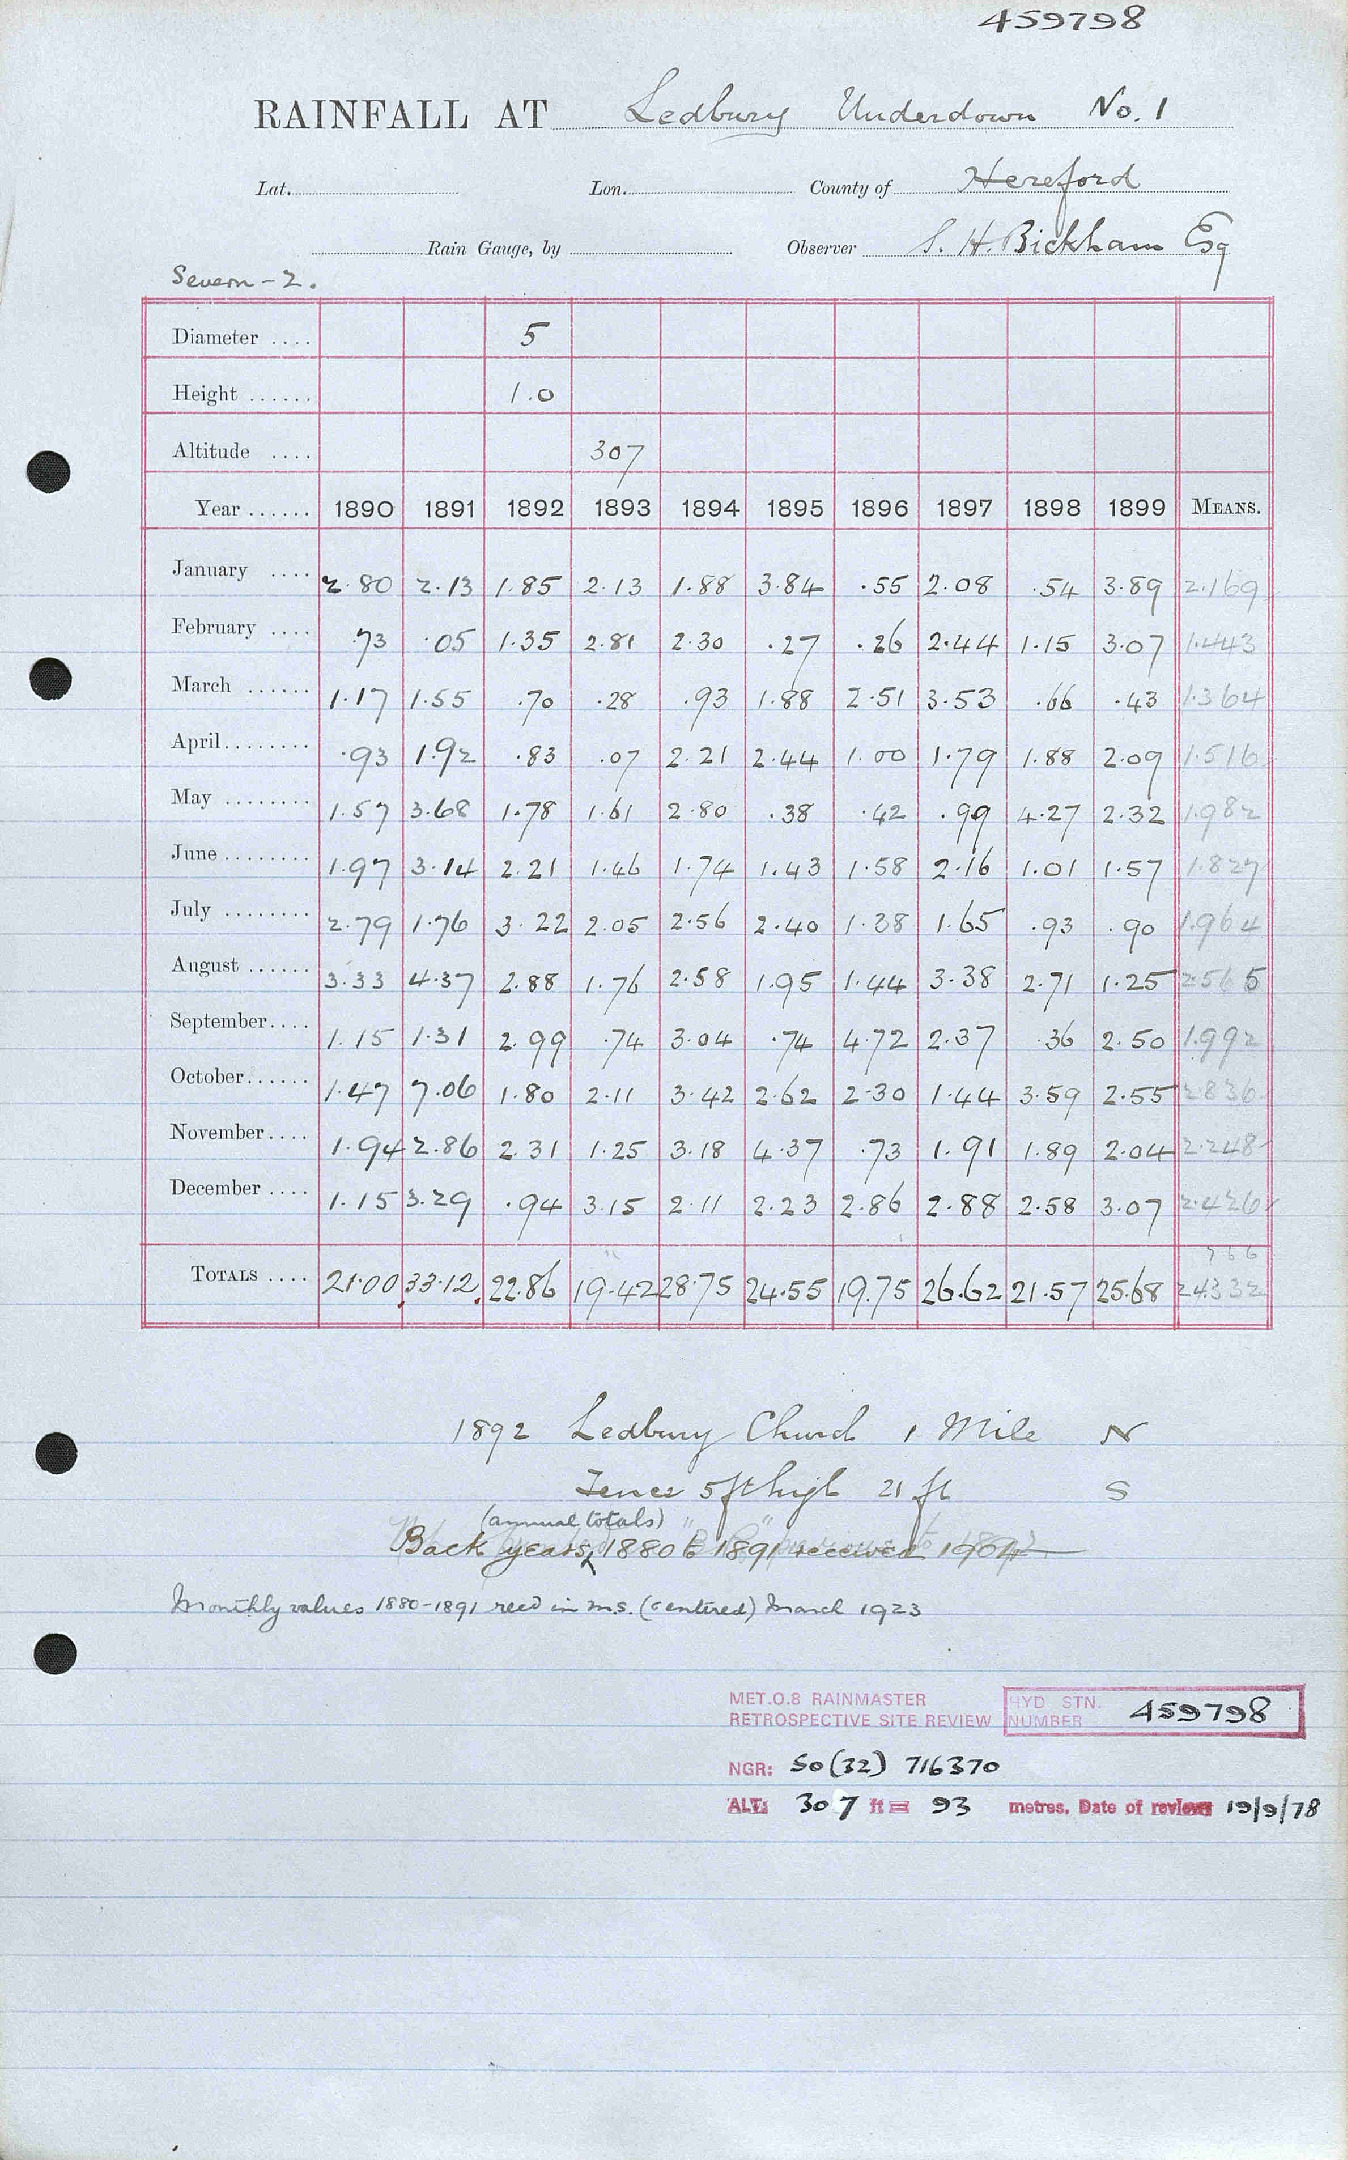 459798
RAINFALL AT Ledbury Underdown No. 1
Lat. Lon. County of Hereford
Rain Gauge, by Observer S. H. Bickham Esq
Severn - 2.
Diameter .... 5
Height ...... 1.0
Altitude .... 307
Year ...... 1890 1891 1892 1893 1894 1895 1896 1897 1898 1899 MEANS.
January .... 2.80 2.13 1.85 2.13 1.88 3.84 .55 2.08 .54 3.89 2.169
February .... .73 .05 1.35 2.81 2.30 .27 .26 2.44 1.15 3.07 1.443
March ...... 1.17 1.55 .70 .28 .93 1.88 2.51 3.53 .66 .43 1.364
April........ .93 1.92 .83 .07 2.21 2.44 1.00 1.79 1.88 2.09 1.516
May ........ 1.57 3.68 1.78 1.61 2.80 .38 .42 .99 4.27 2.32 1.982
June ........ 1.97 3.14 2.21 1.46 1.74 1.43 1.58 2.16 1.01 1.57 1.827
July ........ 2.79 1.76 3.22 2.05 2.56 2.40 1.38 1.65 .93 .90 1.964
August ...... 3.33 4.37 2.88 1.76 2.58 1.95 1.44 3.38 2.71 1.25 2.565
September.... 1.15 1.31 2.99 .74 3.04 .74 4.72 2.37 .36 2.50 1.992
October...... 1.47 7.06 1.80 2.11 3.42 2.62 2.30 1.44 3.59 2.55 2.836
November.... 1.94 2.86 2.31 1.25 3.18 4.37 .73 1.91 1.89 2.04 2.248
December .... 1.15 3.29 .94 3.15 2.11 2.23 2.86 2.88 2.58 3.07 2.426
TOTALS .... 21.00 33.12 22.86 19.42 28.75 24.55 19.75 26.62 21.57 25.68 24.332
1892 Ledbury Church 1 Mile N
Fence 5 ft high 21 ft S
(annual totals)
Back years 1880 to 1891 received 1904
Monthly values 1880-1891 recd in m.s. (centered) March 1923
MET.O.8 RAINMASTER
RETROSPECTIVE SITE REVIEW
HYD STN. NUMBER 459798
NGR: SO (32) 716370
ALT: 307 ft = 93 metres. Date of review 19/9/78